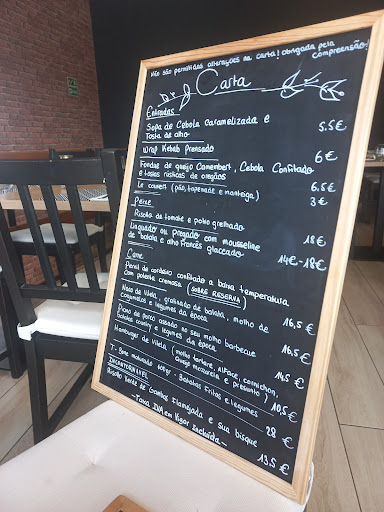 Não são permitidas alterações na carta! Obrigada pela
compreensão!
Carta
Entradas
Sopa de Cebola caramelizada e
Tosta de alho 5.5€
Wrap Kebab Prensado 6€
Fondue de queijo Camembert, Cebola Confitada
e tostas rústicas de orégãos 6.5€
Le couvert (pão, tapenade e manteiga) 3€
Peixe
Risotto de tomate e polvo grelhado 18€
Linguado ou Pregado com mousseline
de batata e alho Francês glaceado 14€-18€
Carne
Pernil de cordeiro confitado a baixa temperatura
com polenta cremosa (SOBRE RESERVA) 16,5€
Naco de Vitela, gratinado de batata, molho de
cogumelos e legumes da época 16,5€
Picanha de porco assado no seu molho barbecue
batatas country e legumes da época 14,5€
Hamburger de Vitela (molho tártaro, alface, cornichon,
queijo mozzarela e presunto) 10,5€
T-Bone maturado 600gr - Batatas Fritas e legumes 28€
Risotto tinta de Gambas Flamejada e sua bisque 13,5€
-Taxa IVA em Vigor Incluída-